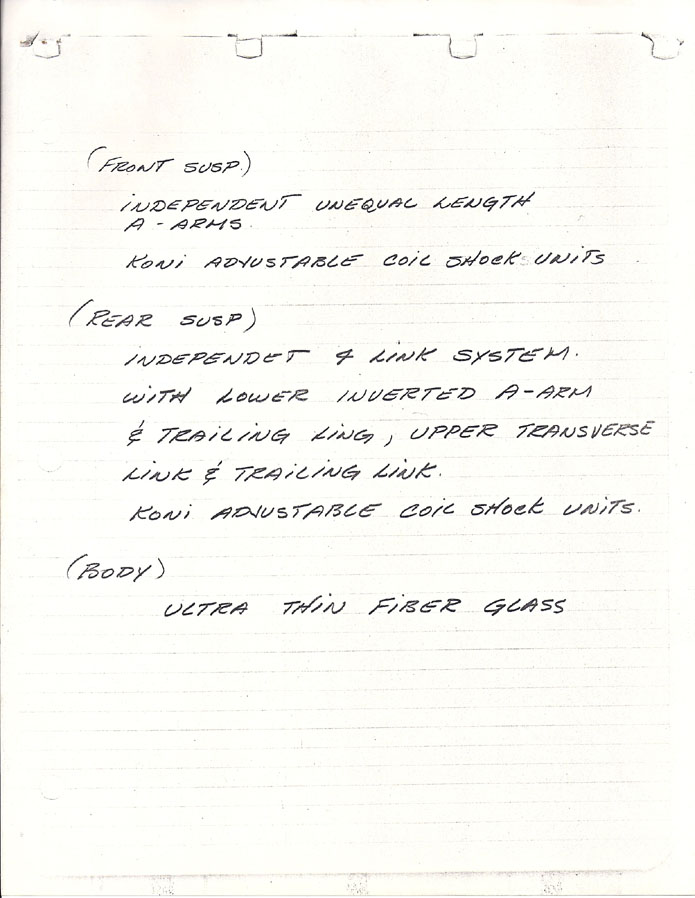 (FRONT SUSP.)
INDEPENDENT UNEQUAL LENGTH
A-ARMS.
KONI ADJUSTABLE COIL SHOCK UNITS
(REAR SUSP)
INDEPENDET 4 LINK SYSTEM.
WITH LOWER INVERTED A-ARM
& TRAILING LING, UPPER TRANSVERSE
LINK & TRAILING LINK.
KONI ADJUSTABLE COIL SHOCK UNITS.
(BODY)
ULTRA THIN FIBER GLASS